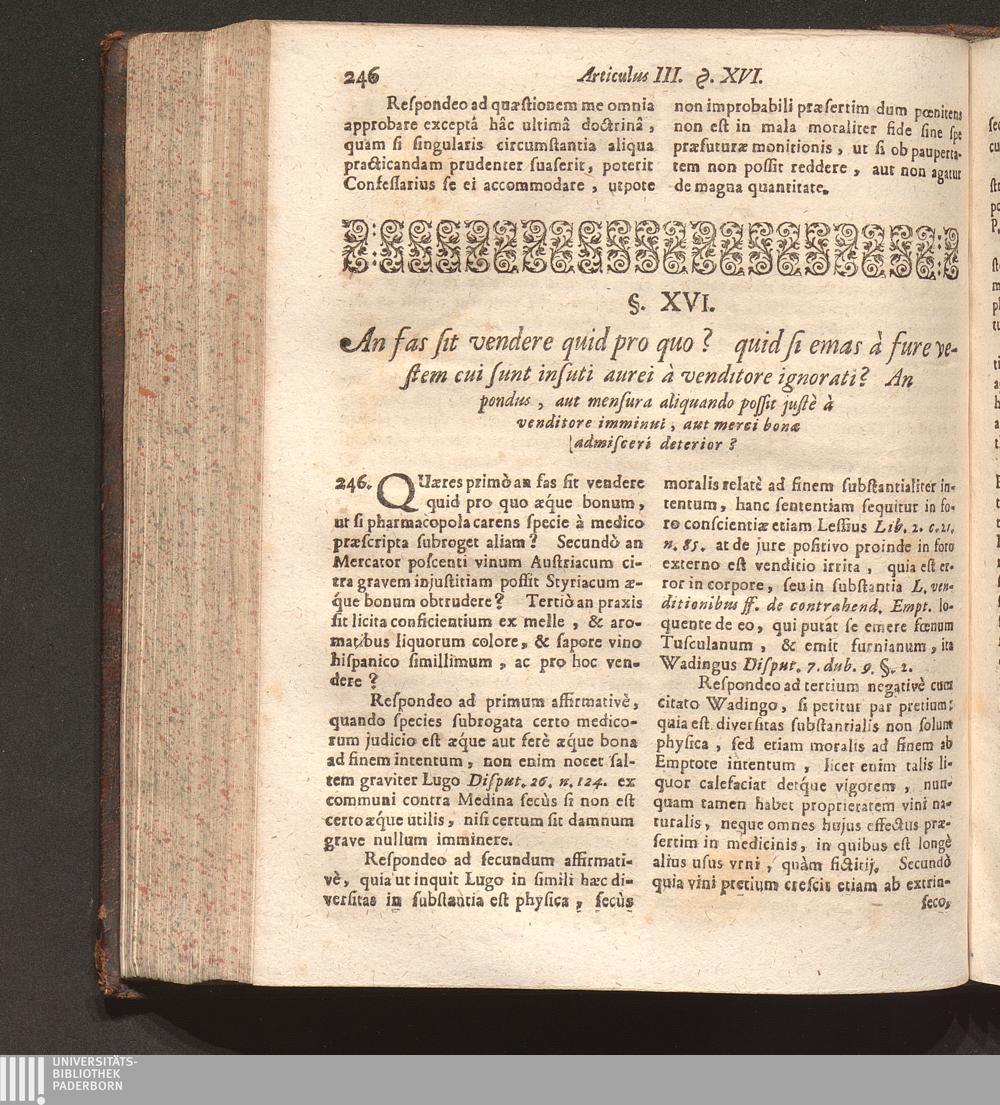 246
Articulus III. §. XVI.
Reſpondeo ad quæſtionem me omnia
approbare exceptâ hâc ultimâ doctrinâ,
quàm ſi ſingularis circumſtantia aliqua
practicandam prudenter ſuaſerit, poterit
Confeſſarius ſe ei accommodare, utpote
non improbabili præſertim dum pœnitens
non eſt in mala moraliter fide ſine ſpe
præfuturæ monitionis, ut ſi ob pauperta-
tem non poſſit reddere, aut non agatur
de magna quantitate.
§. XVI.
An fas ſit vendere quid pro quo? quid ſi emas à fure ve-
ſtem cui ſunt inſuti aurei à venditore ignorati? An
pondus, aut menſura aliquando poſſit juſtè à
venditore imminui, aut merci bonæ
admiſceri deterior?
246. QUæres primò an fas ſit vendere
quid pro quo æque bonum,
ut ſi pharmacopola carens ſpecie à medico
præſcripta ſubroget aliam? Secundò an
Mercator poſcenti vinum Auſtriacum ci-
tra gravem injuſtitiam poſſit Styriacum æ-
que bonum obtrudere? Tertiò an praxis
ſit licita conficientium ex melle, & aro-
matibus liquorum colore, & ſapore vino
hiſpanico ſimillimum, ac pro hoc ven-
dere?
Reſpondeo ad primum affirmativè,
quando ſpecies ſubrogata certo medico-
rum judicio eſt æque aut ferè æque bona
ad finem intentum, non enim nocet ſal-
tem graviter Lugo Diſput. 26. n. 124. ex
communi contra Medina ſecùs ſi non eſt
certo æque utilis, niſi certum ſit damnum
grave nullum imminere.
Reſpondeo ad ſecundum affirmati-
vè, quia ut inquit Lugo in ſimili hæc di-
verſitas in ſubſtantia eſt phyſica, ſecùs
moralis relatè ad finem ſubſtantialiter in-
tentum, hanc ſententiam ſequitur in fo-
ro conſcientiæ etiam Leſſius Lib. 2. c. 21.
n. 85. at de jure poſitivo proinde in foro
externo eſt venditio irrita, quia eſt er-
ror in corpore, ſeu in ſubſtantia L. ven-
ditionibus ff. de contrahend. Empt. lo-
quente de eo, qui putat ſe emere fœnum
Tuſculanum, & emit furnianum, ita
Wadingus Diſput. 7. dub. 9. §. 2.
Reſpondeo ad tertium negativè cum
citato Wadingo, ſi petitur par pretium:
quia eſt diverſitas ſubſtantialis non ſolum
phyſica, ſed etiam moralis ad finem ab
Emptore intentum, licet enim talis li-
quor calefaciat detque vigorem, nun-
quam tamen habet proprietatem vini na-
turalis, neque omnes hujus effectus præ-
ſertim in medicinis, in quibus eſt longè
alius uſus vrni, quàm fictitij. Secundò
quia vini pretium creſcit etiam ab extrin-
ſeco,
UNIVERSITÄTS-
BIBLIOTHEK
PADERBORN